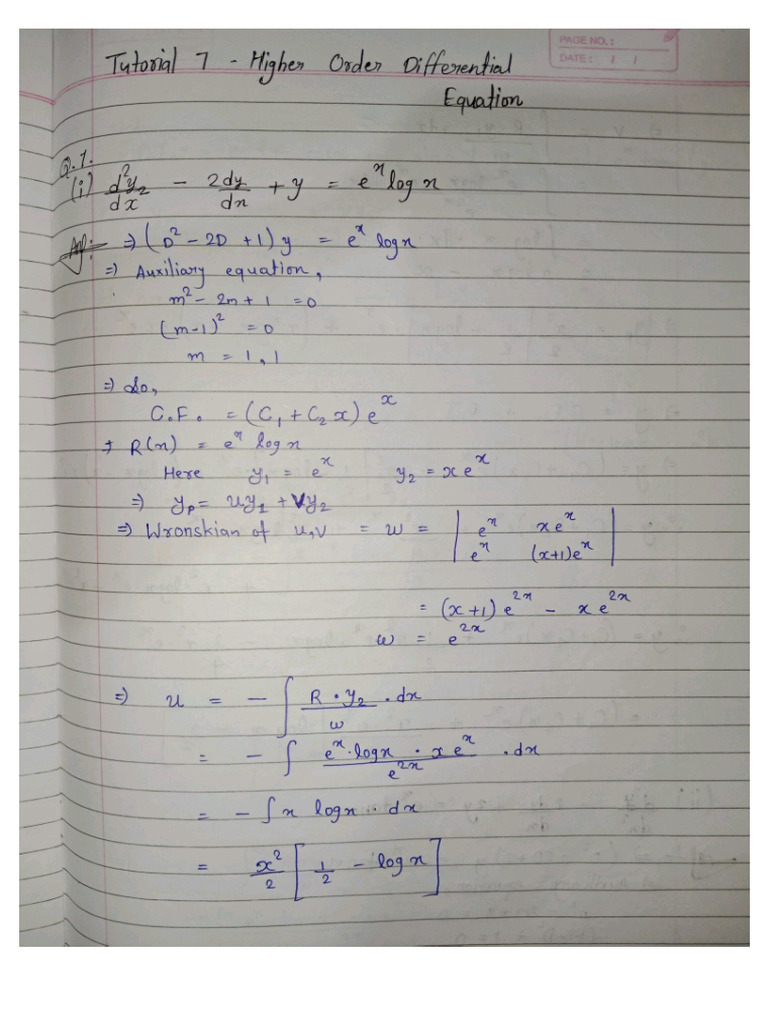 PAGE NO.:
DATE: / /
Tutorial 7 - Higher Order Differential
Equation
Q.1.
(i) d²y/dx² - 2dy/dx + y = eˣ log x
⇒ (D² - 2D + 1) y = eˣ log x
⇒ Auxiliary equation,
m² - 2m + 1 = 0
(m-1)² = 0
m = 1, 1
⇒ So,
C.F. = (C₁ + C₂ x) eˣ
⇒ R(x) = eˣ log x
Here y₁ = eˣ y₂ = x eˣ
⇒ yₚ = uy₁ + vy₂
⇒ Wronskian of u,v = w = | eˣ xeˣ |
| eˣ (x+1)eˣ |
= (x+1) e²ˣ - x e²ˣ
w = e²ˣ
⇒ u = - ∫ R · y₂ / w · dx
= - ∫ eˣ · log x · x eˣ / e²ˣ · dx
= - ∫ x log x · dx
= x²/2 [ 1/2 - log x ]